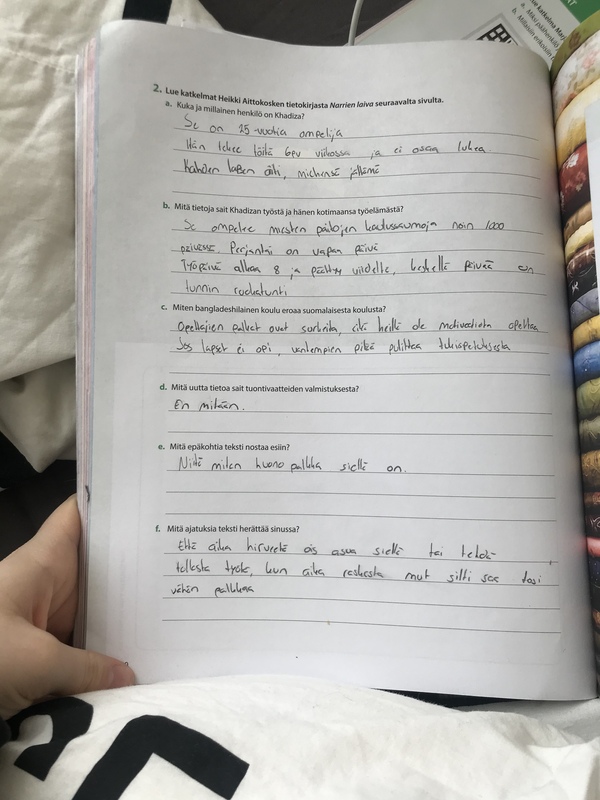 2. Lue katkelmat Heikki Aittokosken tietokirjasta Narrien laiva seuraavalta sivulta.
a. Kuka ja millainen henkilö on Khadiza?
Se on 25-vuotia ompelija
Hän tekee töitä 6pv viikossa ja ei osaa lukea.
Kahden lapsen äiti, miehensä jättämä
b. Mitä tietoja sait Khadizan työstä ja hänen kotimaansa työelämästä?
Se ompelee miesten paitojen kaulussaumoja noin 1000
päivässä. Perjantai on vapaa päivä
Työpäivä alkaa 8 ja päättyy viideltä, keskellä päivää on
tunnin ruokatunti
c. Miten bangladeshilainen koulu eroaa suomalaisesta koulusta?
Opettajien palkat ovat surkeita, eikä heillä ole motivaatiota opettaa
Jos lapset ei opi, vanhempien pitää pulittaa tukiopetuksesta
d. Mitä uutta tietoa sait tuontivaatteiden valmistuksesta?
En mitään.
e. Mitä epäkohtia teksti nostaa esiin?
Niitä miten huono palkka siellä on.
f. Mitä ajatuksia teksti herättää sinussa?
Että aika hirveetä ois asua siellä tai tehdä
tollasta työtä, kun aika raskasta mut silti saa tosi
vähän palkkaa